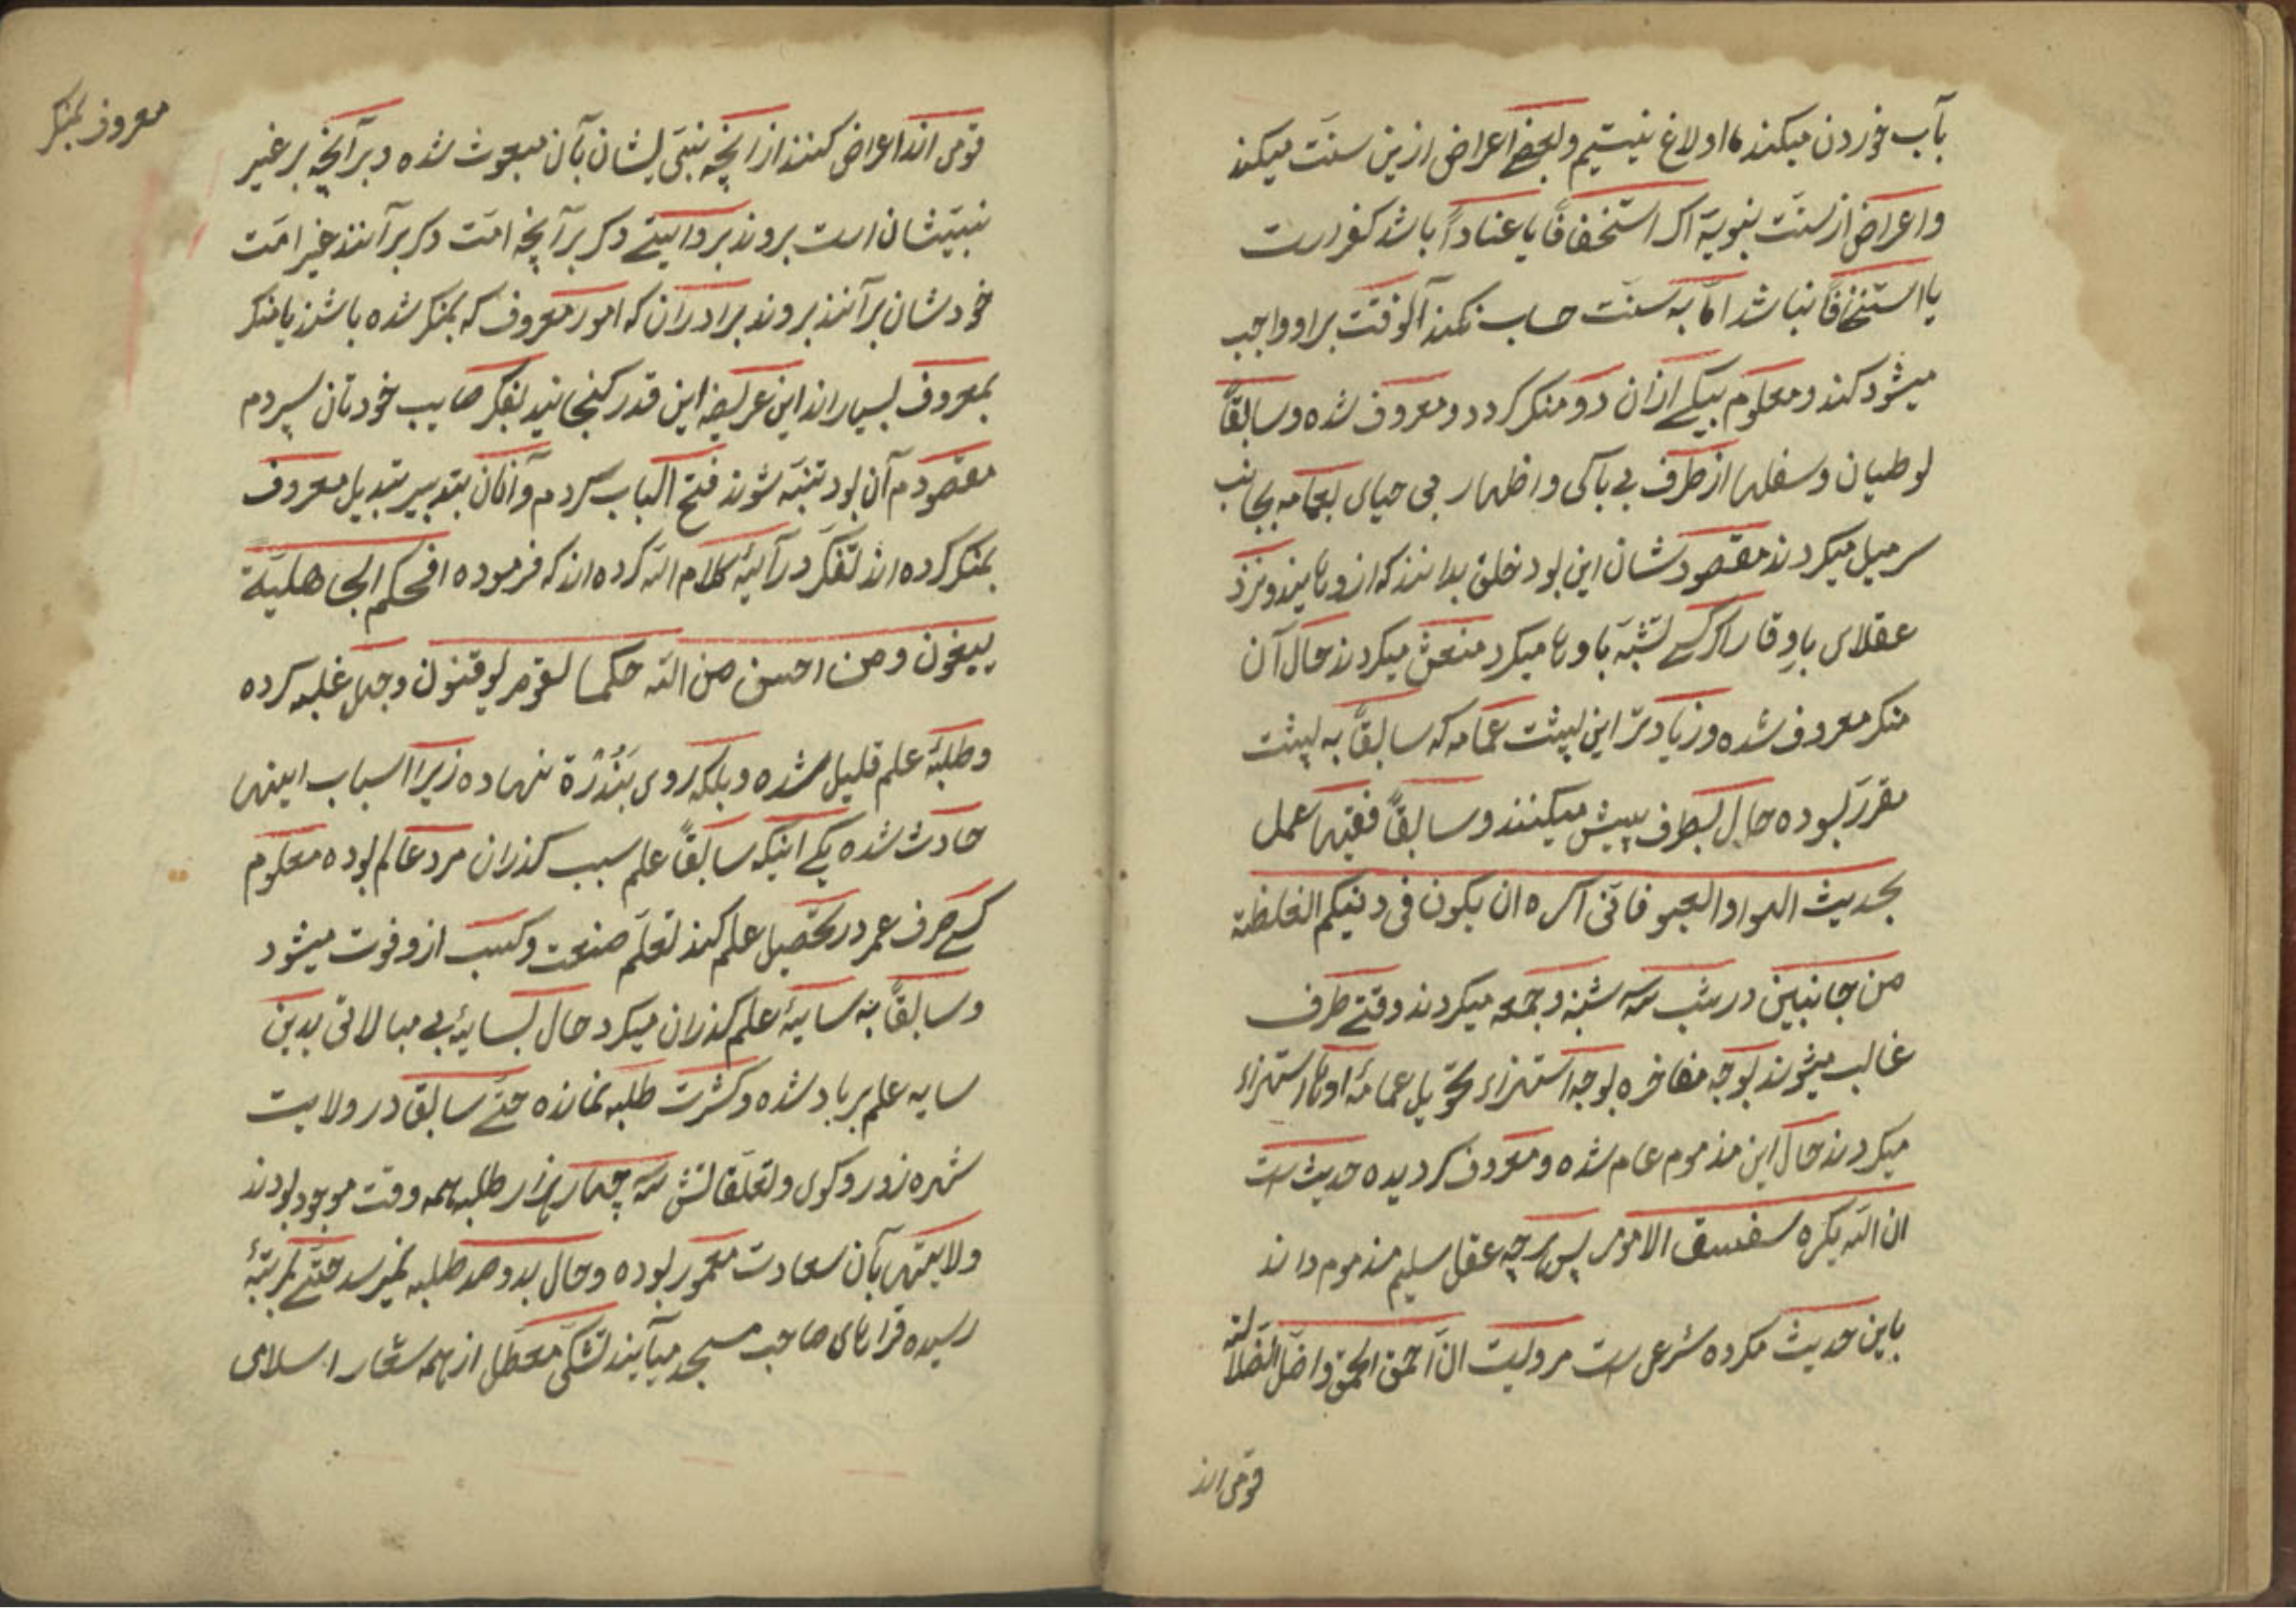 بآب خوردن میکنند ما اولاغ نیستیم ولبعضے اعراض ازین سنت میکند
واعراض از سنت نبویة اکر استخفافًا یا عنادًا باشد کفر است
یا استخفافًا نباشد امّا به سنت حساب نکند آلوقت براو واجب
میشود کند ومعلوم بیکے ازان دو منکر کردد ومعروف شده وسابقًا
لوطیان وسفلها از طرف بے باکی واظهار بی حیای بعمامه بجانب
سر میل میکردند مقصود شان این بود خلق بدانند که ازوهایند ونزد
عقلای باوقار اکر کسے تشبه باوها میکرد منعش میکردند حال آن
منکر معروف شده وزیادتر این پشت عمامه که سابقًا به پشت
مقرر بوده حال بطرف پیش میکنند وسابقًا فقیها عمل
بحدیث الهوا والعبو فانی اکره ان یکون فی دینکم الغلظة
من جانبین در شب سه شنبه وجمعه میکردند وقتے طرف
غالب میشوند بوجه مفاخره بوجه استهزاء تحویل عمامهٔ اوها استهزاء
میکردند حال این مذموم عام شده ومعروف کردیده حدیث است
ان الله یکره سفسف الامور پس هرچه عقل سلیم مذموم داند
باین حدیث مکروه شرعی است مرویست انّ احمق الحمق واضلّ الضلالة
قومی اند
معروف بمنکر
قومی اند اعراض کنند از انچه نبیّ یشان بآن مبعوث شده وبر آنچه بر غیر
نبیّشان است بروند بر وایتے دکر بر آنچه امّت دکر برآنند غیر امّت
خودشان برآنند بروند برادران که امور معروف که بمنکر شده باشند یا منکر
بمعروف بسیارند این عریضه این قدر کنجانید بفکر صایب خودتان سپردم
مقصودم آن بود تنبّه شوند فتح الباب کردم وآنان بتدبیر تبدیل معروف
بمنکر کرده اند تفکّر در آیهٔ کلام الله کرده اند که فرموده افحکم الجاهلیّة
یبغون ومن احسن من الله حکما لقوم یوقنون وجهل غلبه کرده
وطلبهٔ علم قلیل شده وبلکه روی بنُدْرَة نهاده زیرا اسباب اینها
حادث شده یکے اینکه سابقًا علم سبب کذران مرد عالم بوده معلوم
کسے صرف عمر در تحصیل علم کند تعلّم صنعت وکسب ازو فوت میشود
وسابقًا به سایهٔ علم کذران میکرد حال بسایهٔ بے مبالاتی بدین
سایه علم برباد شده وکثرت طلبه نمانده حتّے سابق در ولایت
شهره زور وکوی وتعلّقاتش سه چهار هزار طلبه همه وقت موجود بودند
ولایتها بآن سعادت معمور بوده وحال بدو صد طلبه نمیرسد حتّے بمرتبهٔ
رسیده قراهای صاحب مسجد میآیند تشکّی معطّل از همه شعار اسلامی